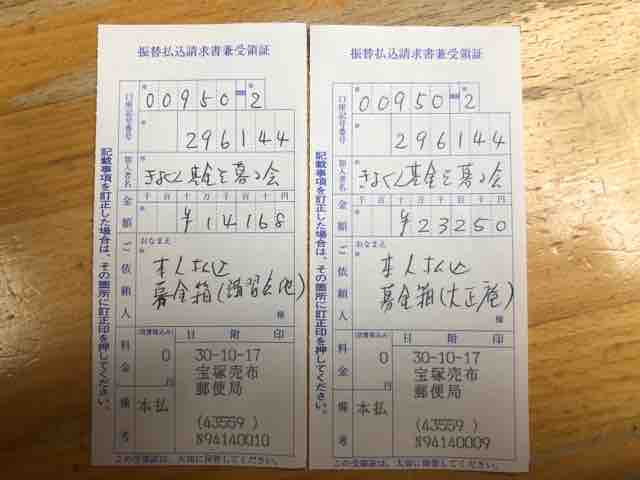 振替払込請求書兼受領証
口座記号番号
00950-2
296144
加入者名
きよくん基金を募る会
金額
千百十万千百十円
¥14168
ご依頼人
おなまえ
本人払込
募金箱(講習会他)
様
料金
(消費税込み)
0
円
日附印
30-10-17
宝塚売布
郵便局
(43559 )
894140010
備考
本払
記載事項を訂正した場合は、その箇所に訂正印を押してください。
この受領証は、大切に保管してください。
振替払込請求書兼受領証
口座記号番号
00950-2
296144
加入者名
きよくん基金を募る会
金額
千百十万千百十円
¥23250
ご依頼人
おなまえ
本人払込
募金箱(大正庵)
様
料金
(消費税込み)
0
円
日附印
30-10-17
宝塚売布
郵便局
(43559 )
894140009
備考
本払
記載事項を訂正した場合は、その箇所に訂正印を押してください。
この受領証は、大切に保管してください。